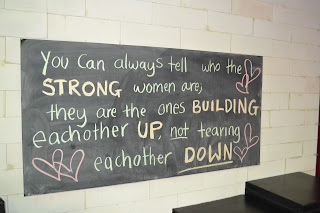 you can always tell who the
STRONG women are,
they are the ones BUILDING
eachother UP, not tearing
eachother DOWN